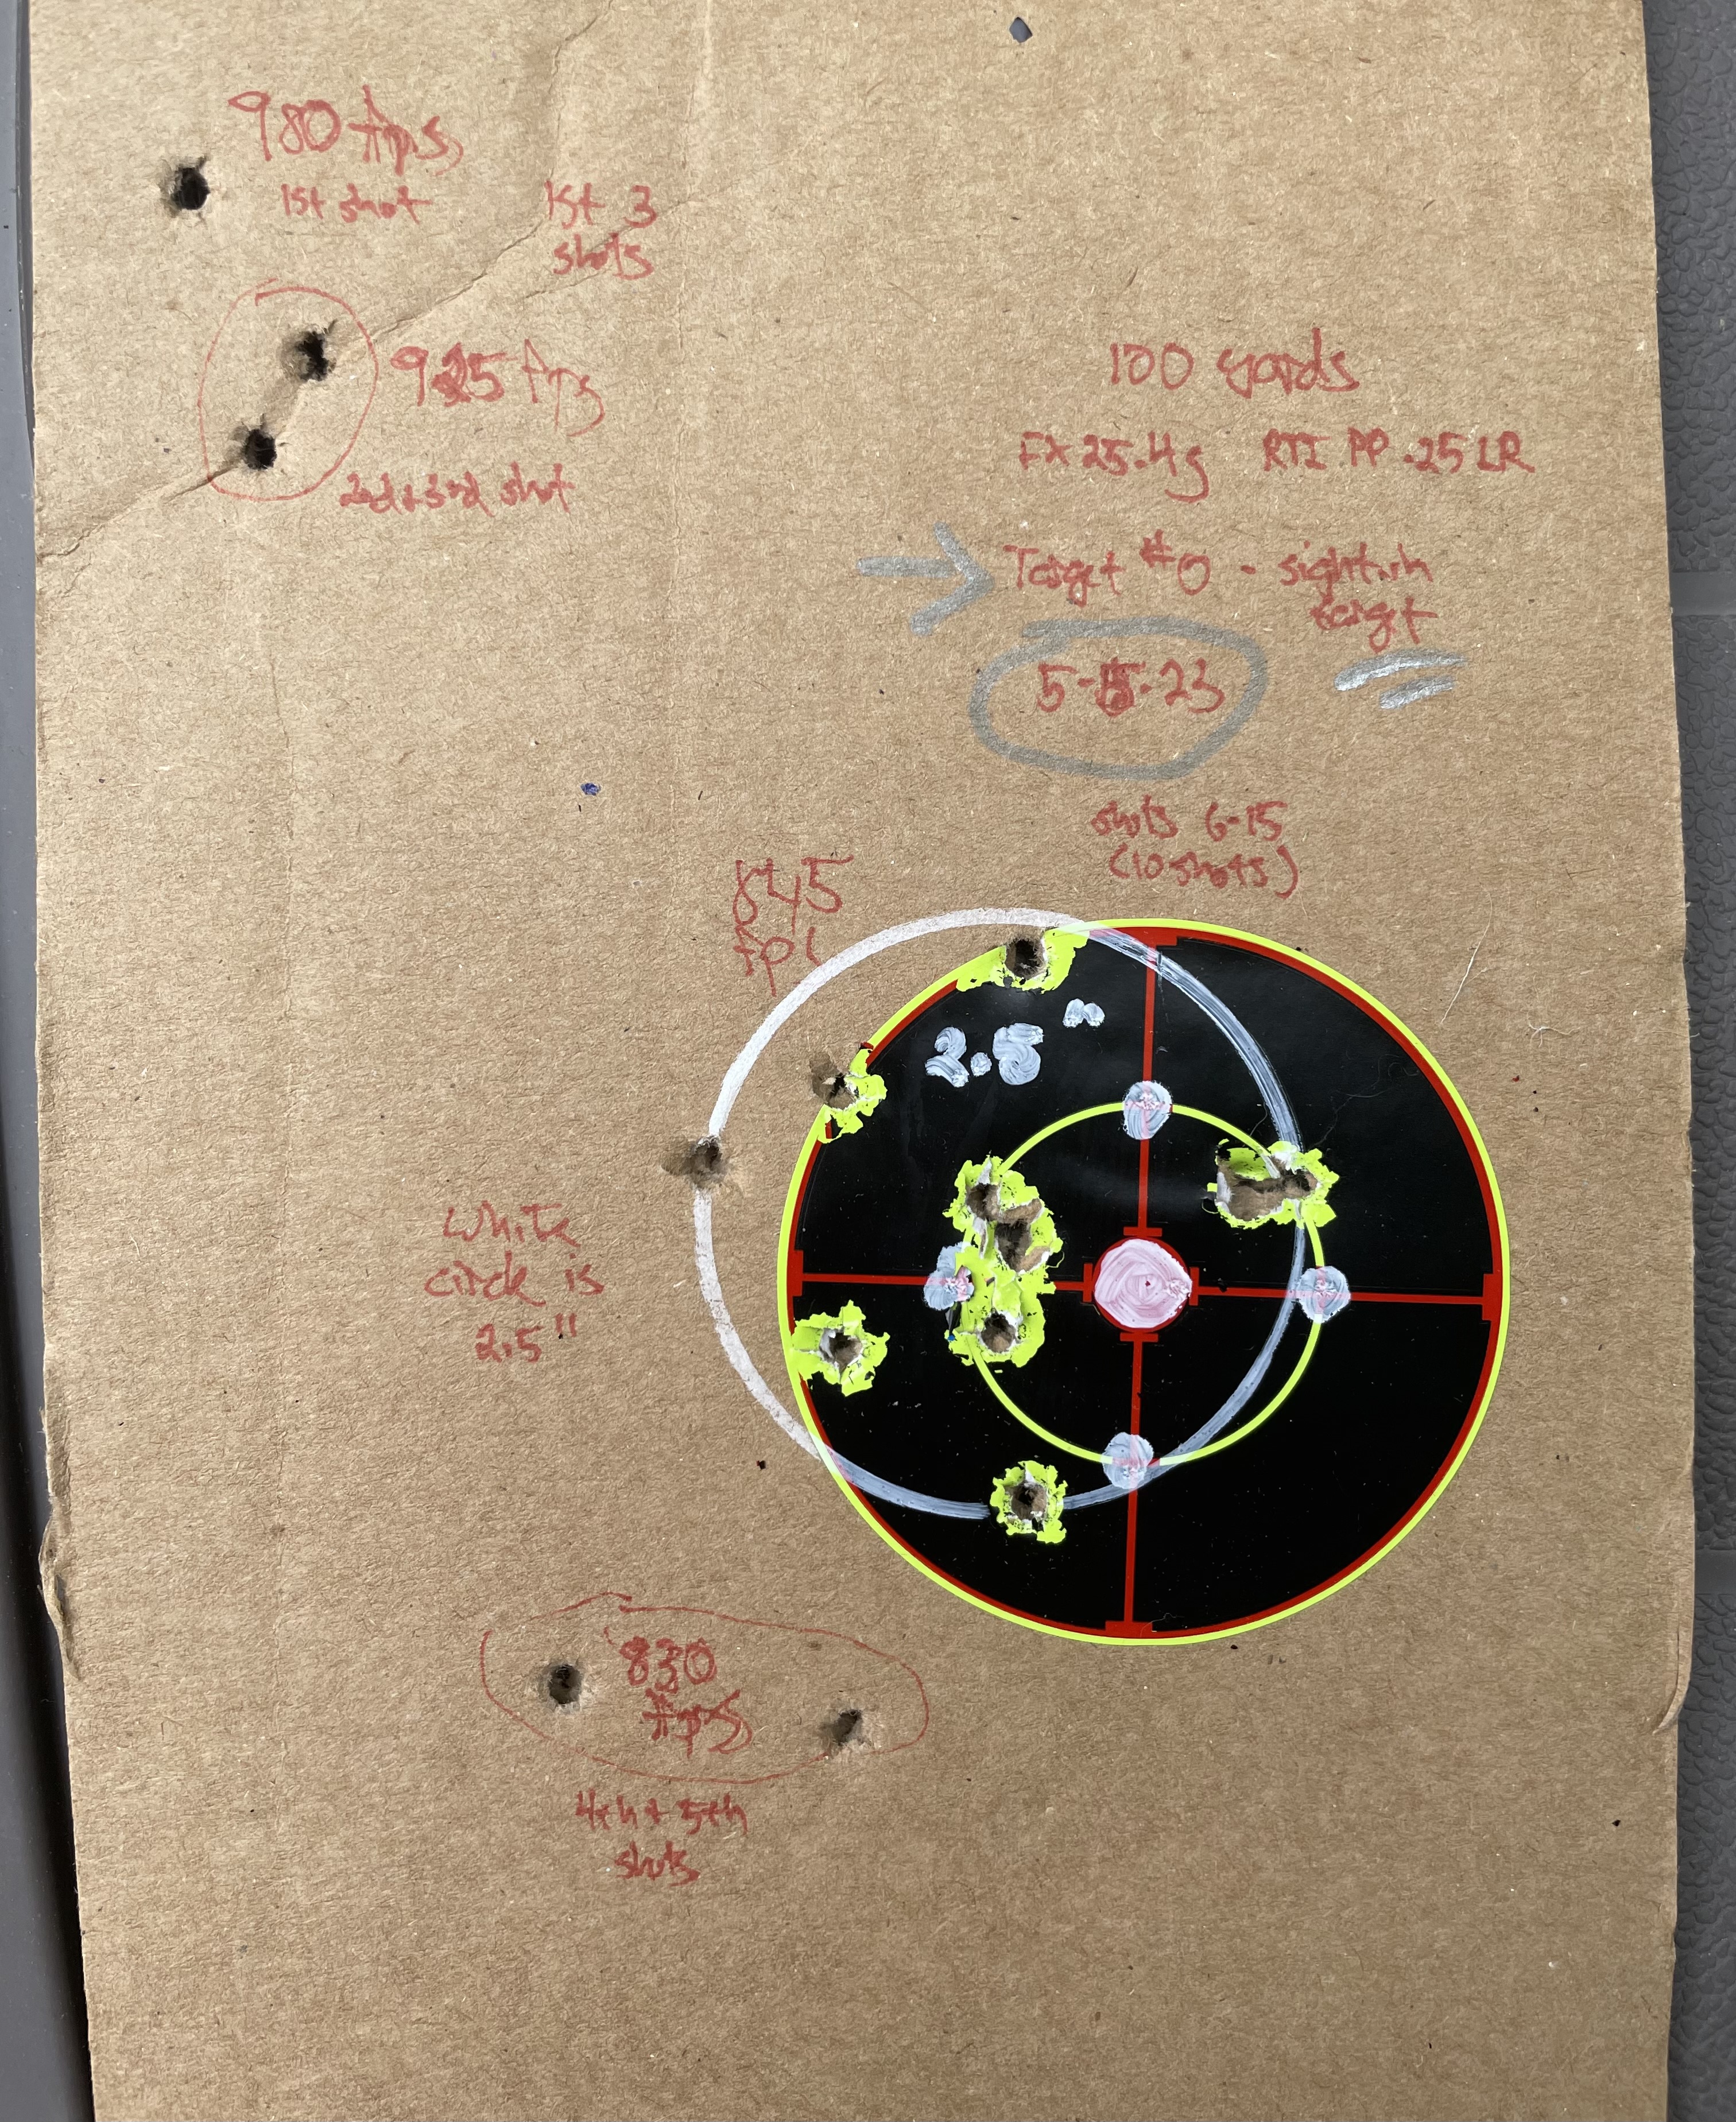 980 fps
1st shot
1st 3
shots
925 fps
2nd + 3rd shot
100 yards
FX 25.4g RTI PP .25 LR
Target #0 - sight in
target
5-15-23
shots 6-15
(10 shots)
845
fps
2.5"
White
circle is
2.5"
830
fps
4th + 5th
shots